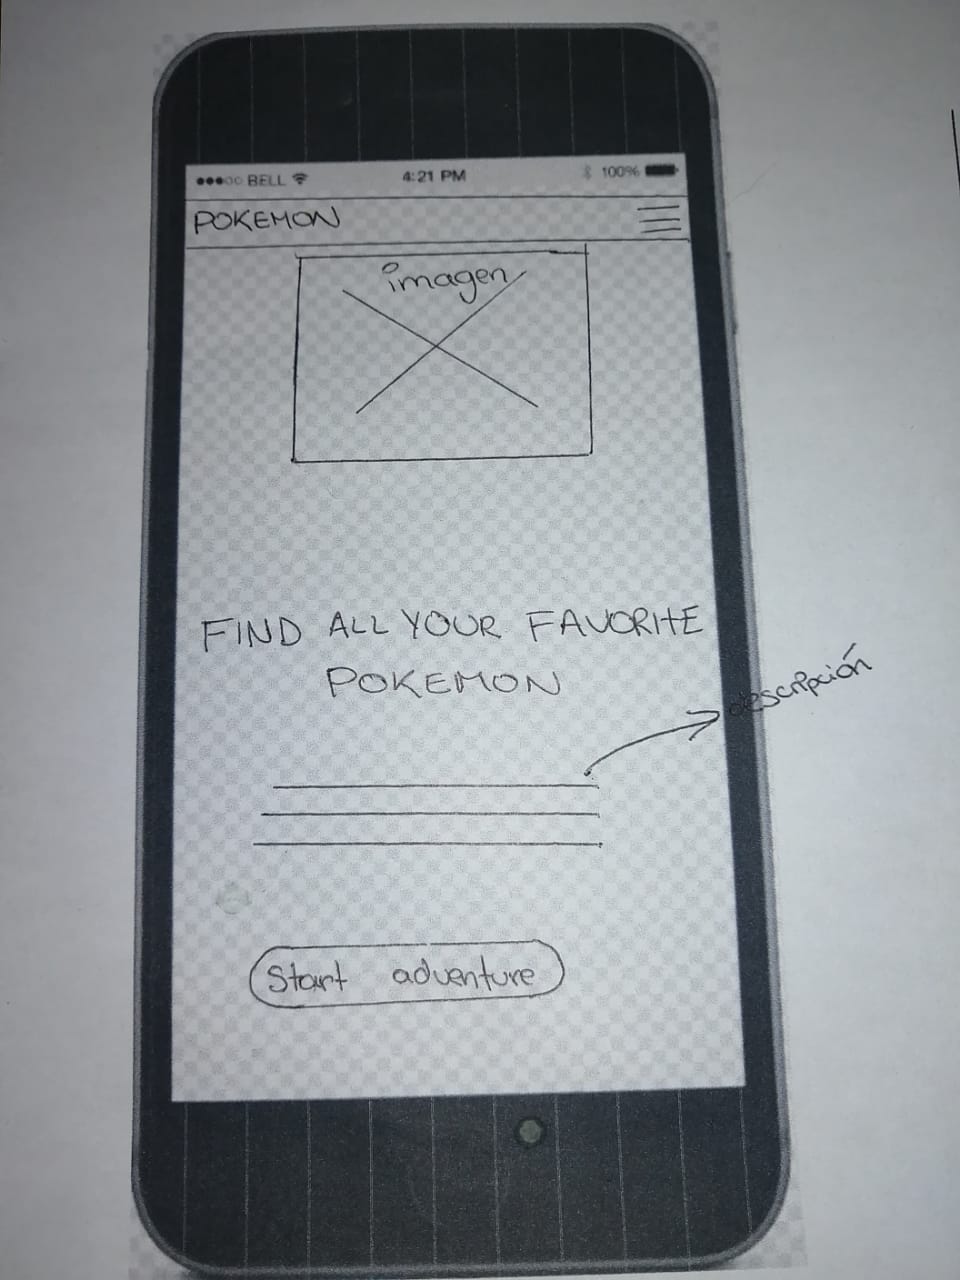 BELL 4:21 PM 100%
POKEMON
imagen
FIND ALL YOUR FAVORITE
POKEMON
descripción
Start adventure